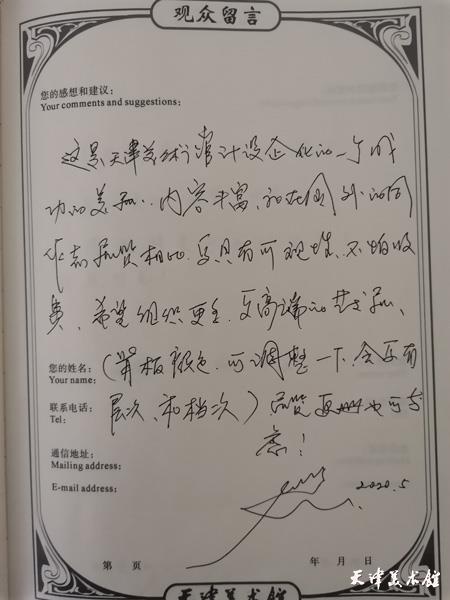 观众留言
您的感想和建议：
Your comments and suggestions:
这是天津美术馆计设企化的一个成
功的美展．内容丰富，和在国外的同
类 展览相比．更具有可观性．不怕收
费，希望组织更多．更高端的艺术展、
您的姓名：
Your name:
（背板颜色．可调整一下，会还有
联系电话：
Tel:
层次、和档次）展览 也可考
虑！
通信地址：
Mailing address:
E-mail address:
2020.5
第 页
年 月 日
天津美术馆
天津美术馆